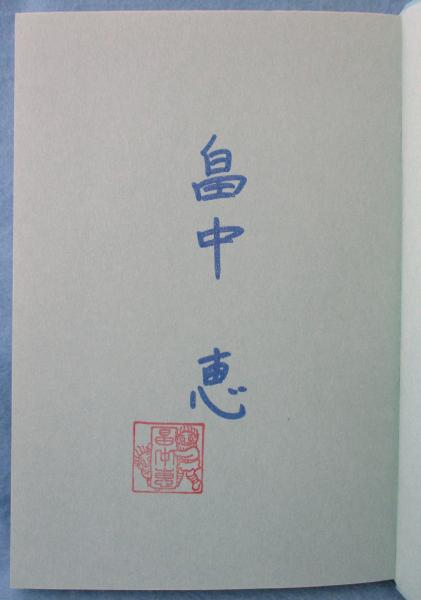 畠中 恵
畠中恵